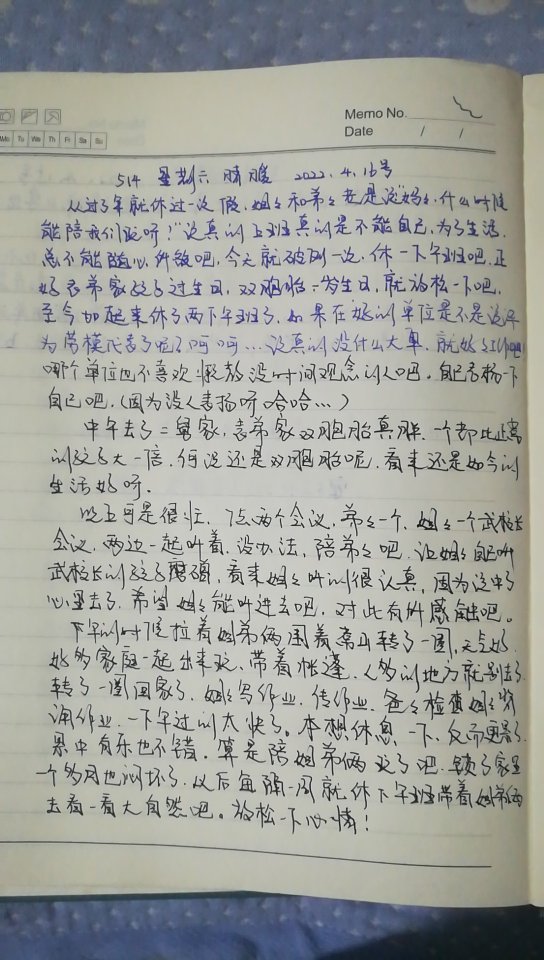 Memo No.
Date / /
Mo Tu We Th Fr Sa Su
514 星期六 晴暖 2022.4.16号
从过了年就休过一次假,姐々和弟々老是说"妈々,什么时候
能陪我们玩呀!"说真的上班真的是不能自己,为了生活
总不能随心所欲吧,今天就破例一次,休一下午班吧,正
好表弟家孩子过生日,双胞胎一岁生日,就放松一下吧。
至今加起来休了两下午班了,如果在好的单位是不是选评
为劳模代表了呢?呵呵…说真的没什么大事,就好々工作吧
哪个单位也不喜欢懒散没时间观念的人吧。自己表扬一下
自己吧,(因为没人表扬呀哈哈…)
中午去了二舅家,表弟家双胞胎真胖,一个都比正常
的孩子大一倍,何况还是双胞胎呢,看来还是如今的
生活好呀。
晚上可是很忙,7点两个会议,弟々一个,姐々一个武校长
会议,两边一起叫着,没办法,陪弟々吧,让姐々自己听
武校长的 看来姐々听的很认真,因为说中了
心里去了,希望姐々能听进去吧,对此有所感触吧。
下午的时候拉着姐弟俩围着东山转了一圈,天气好,
好多家庭一起出来玩,带着帐篷,人多的地方就别去了
转了一圈回家了,姐々写作业,传作业,爸々检查姐々背
诵作业,一下午过的太快了。本想休息一下,反而更累了
累中有乐也不错,算是陪姐弟俩玩了吧,锁了家里
一个多月也闷坏了,以后每隔一周就休下午班带着姐弟俩
去看一看大自然吧。放松一下心情!